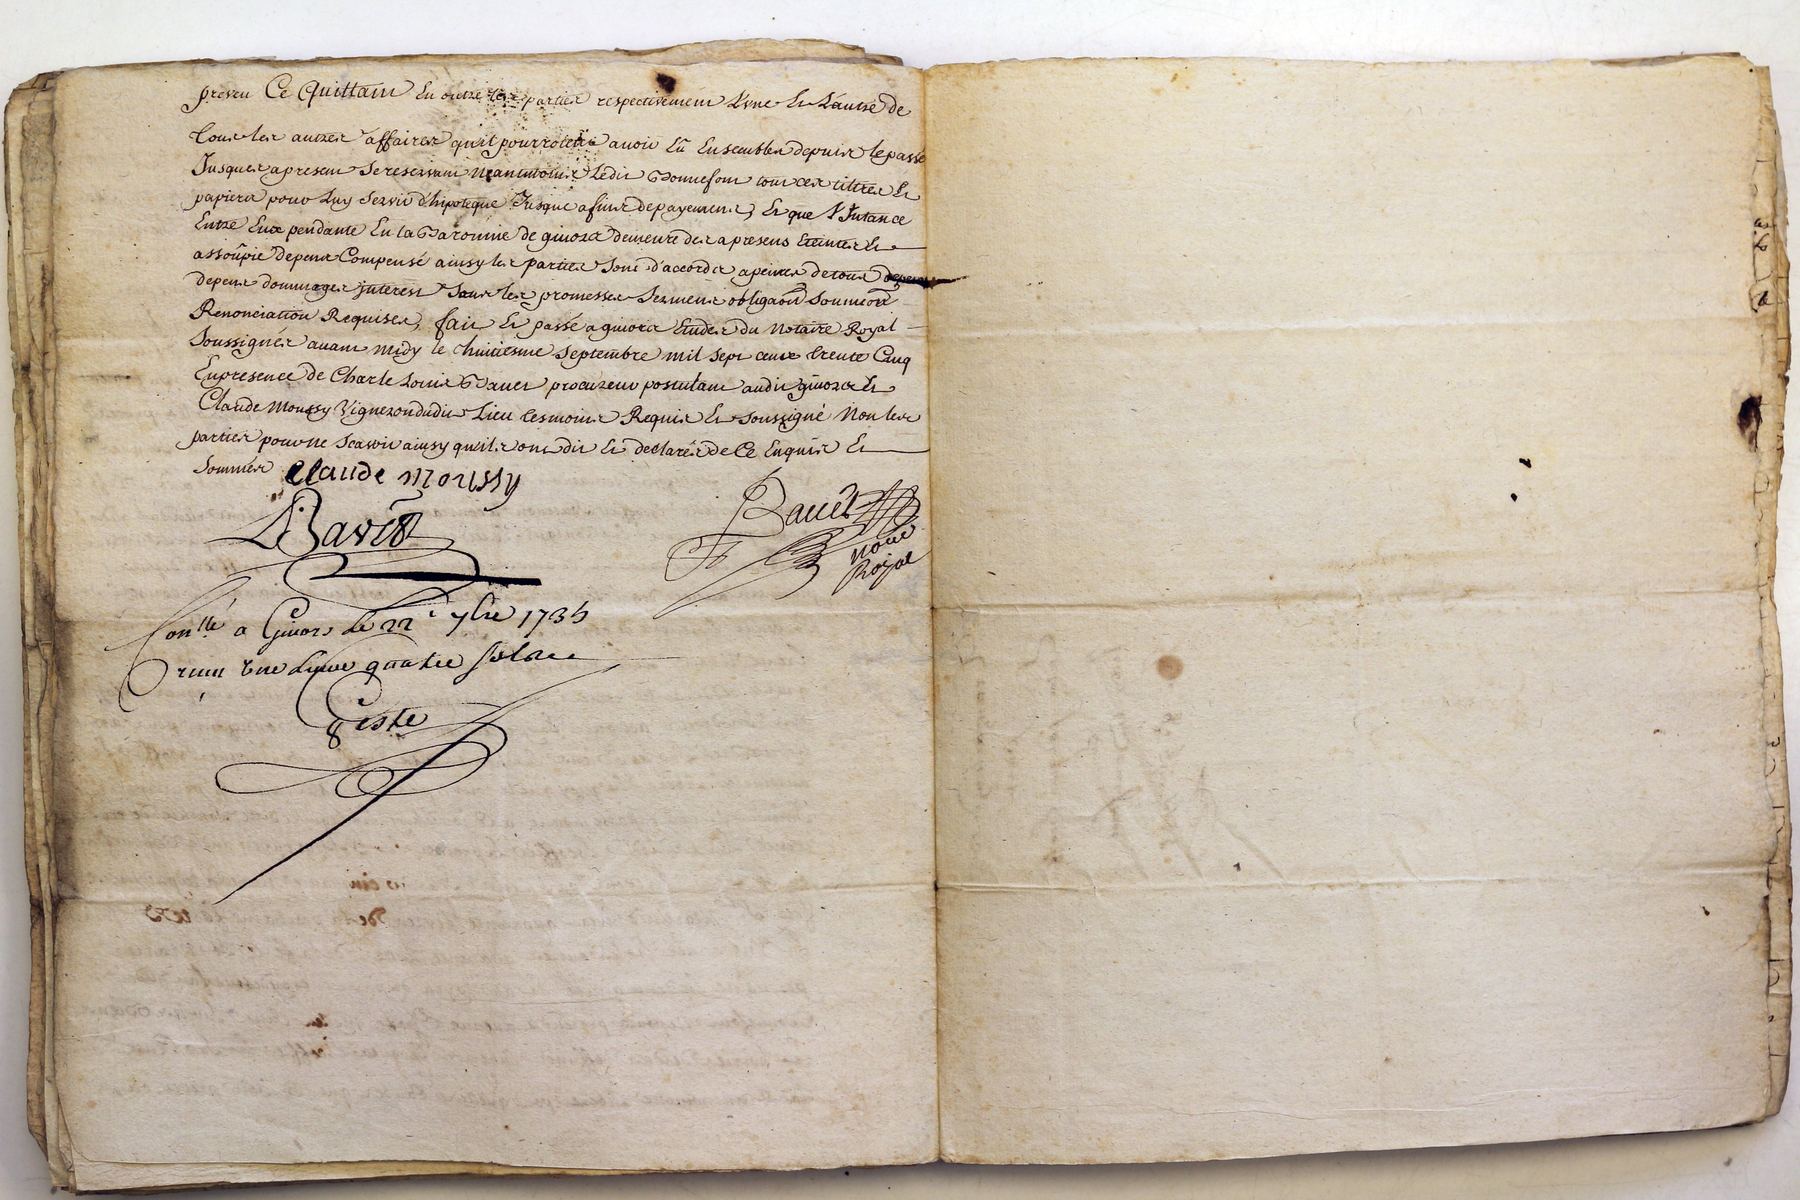 preveu Ce Quittam En outre les parties respectivement L'une Et L'autre de
tous les autres affaires qu'il pourroient avoir Eû Ensembles depuis le passé
Jusques apresent Se reservant Neantmoins Ledit Bonnefont tous ces tiltres Et
papiers pour Luy Servir d'hipoteque Jusque a fins de payement, Et que L'Intance
Entre Eux pendante En la Baronnie de givors demeure des apresens Eteintes Et
assoupie depens Compensé ainsy les parties Sont d'accord a peines de tous
depens dommages interest Sous les promesses Serment obligaon Soumion
Renonciation Requises, fait Et passé a givors Etudes du Notaire Royal
Soussignés avant midy le huitiesme Septembre mil Sept cents trente Cinq
En presence de Charle Louis Bavet procureur postulant audit givors Et
Claude Moussy Vigneron dudit Lieu tesmoins Requis Et Soussigné Non les
parties pour ne Scavoir ainsy qu'ils ont dit Et declarés de Ce Enquis Et
Sommés
Claude Moussy
LBavet
Bavet
Nore
Royal
Conllé a Givors Le 22e 7bre 1735
Reçu une Livre quatre sols
Geste